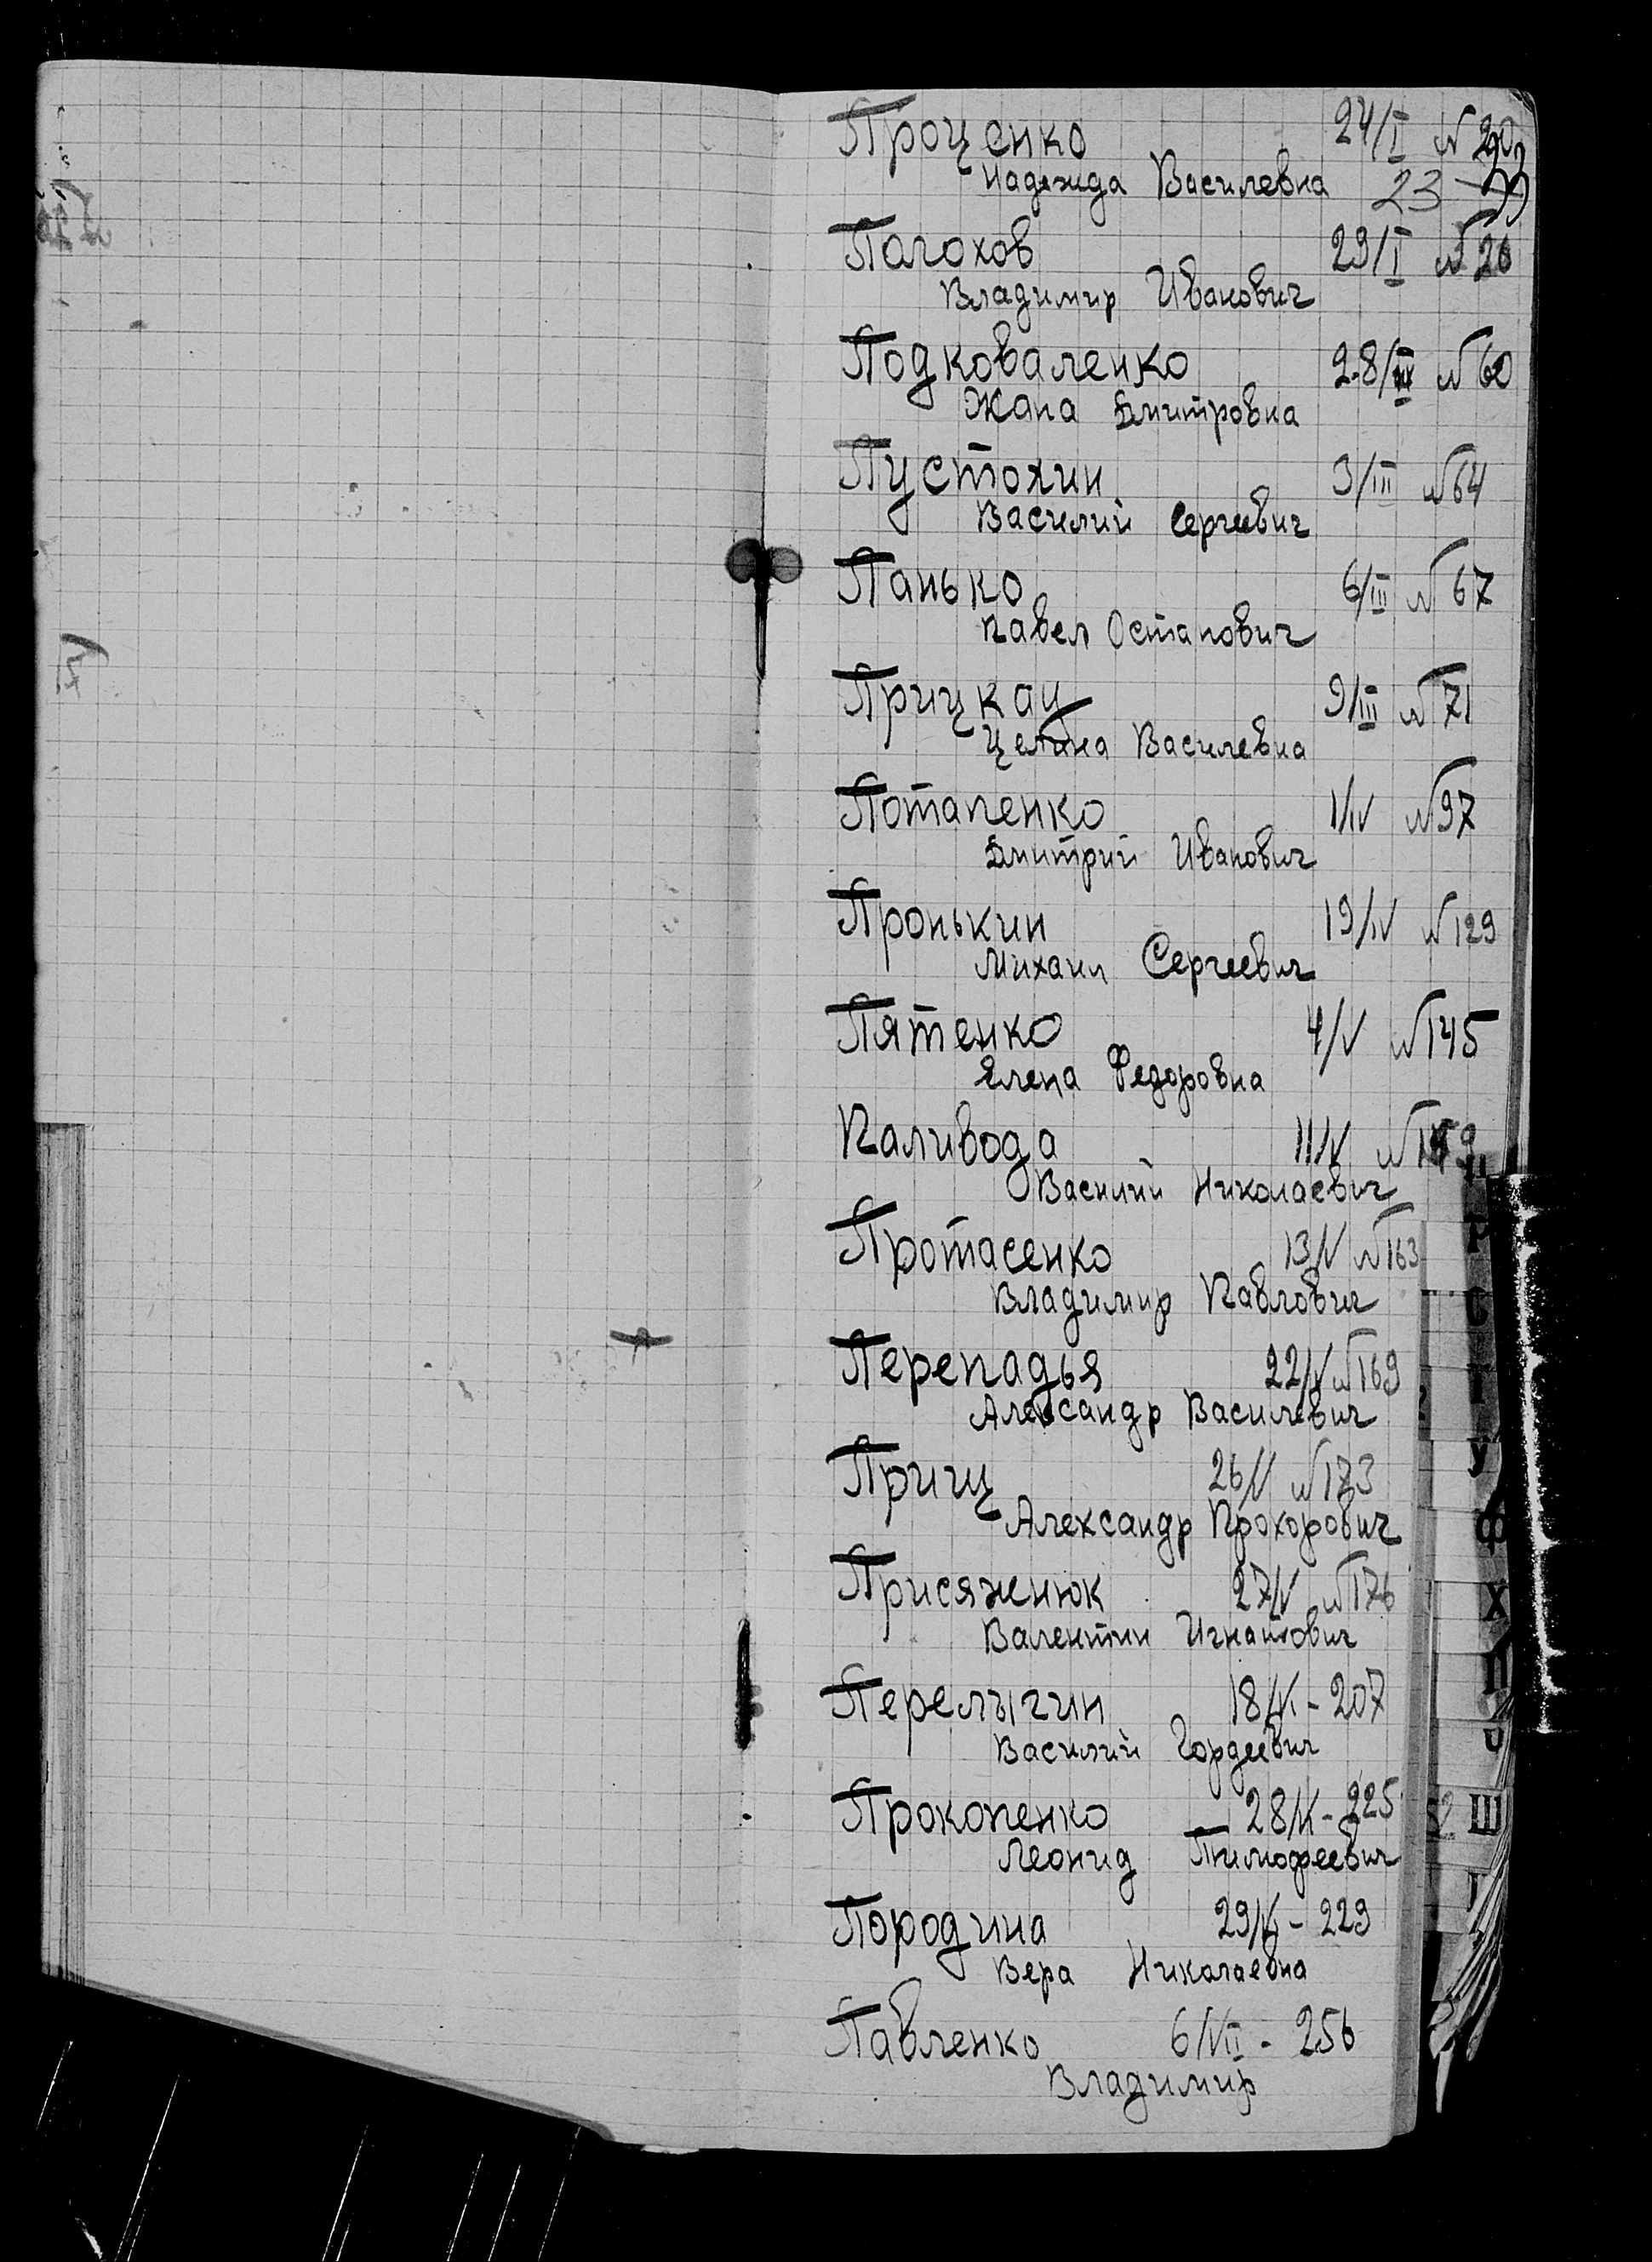 Проценко 24/I №20
Надежда Василевна 23
Погохов 29/I №26
Владимир Иванович
Подковаленко 28/II №60
Жана Дмитровна
Пустохин 3/III №64
Василий Сергеевич
Панько 6/III №67
Павел Остапович
Прицкау 9/III №71
Целина Василевна
Потапенко 1/IV №97
Дмитрий Иванович
Пронькин 19/IV №129
Михаил Сергеевич
Пятенко 4/V №145
Елена Федоровна
Паливода 11/V
Василий Николаевич
Протасенко 13/V №163
Владимир Павлович
Перепадья 22/V №169
Александр Василевич
Прищ 26/V №173
Александр Прохорович
Присяженюк 27/V №176
Валентин Игнатович
Перелыгин 18/VI - 207
Василий Гордеевич
Прокопенко 28/VI - 225
Леонид Тимофеевич
Породина 29/VI - 229
Вера Николаевна
Павленко 6/VII - 256
Владимир
Р
С
Т
У
Ф
Х
Ш